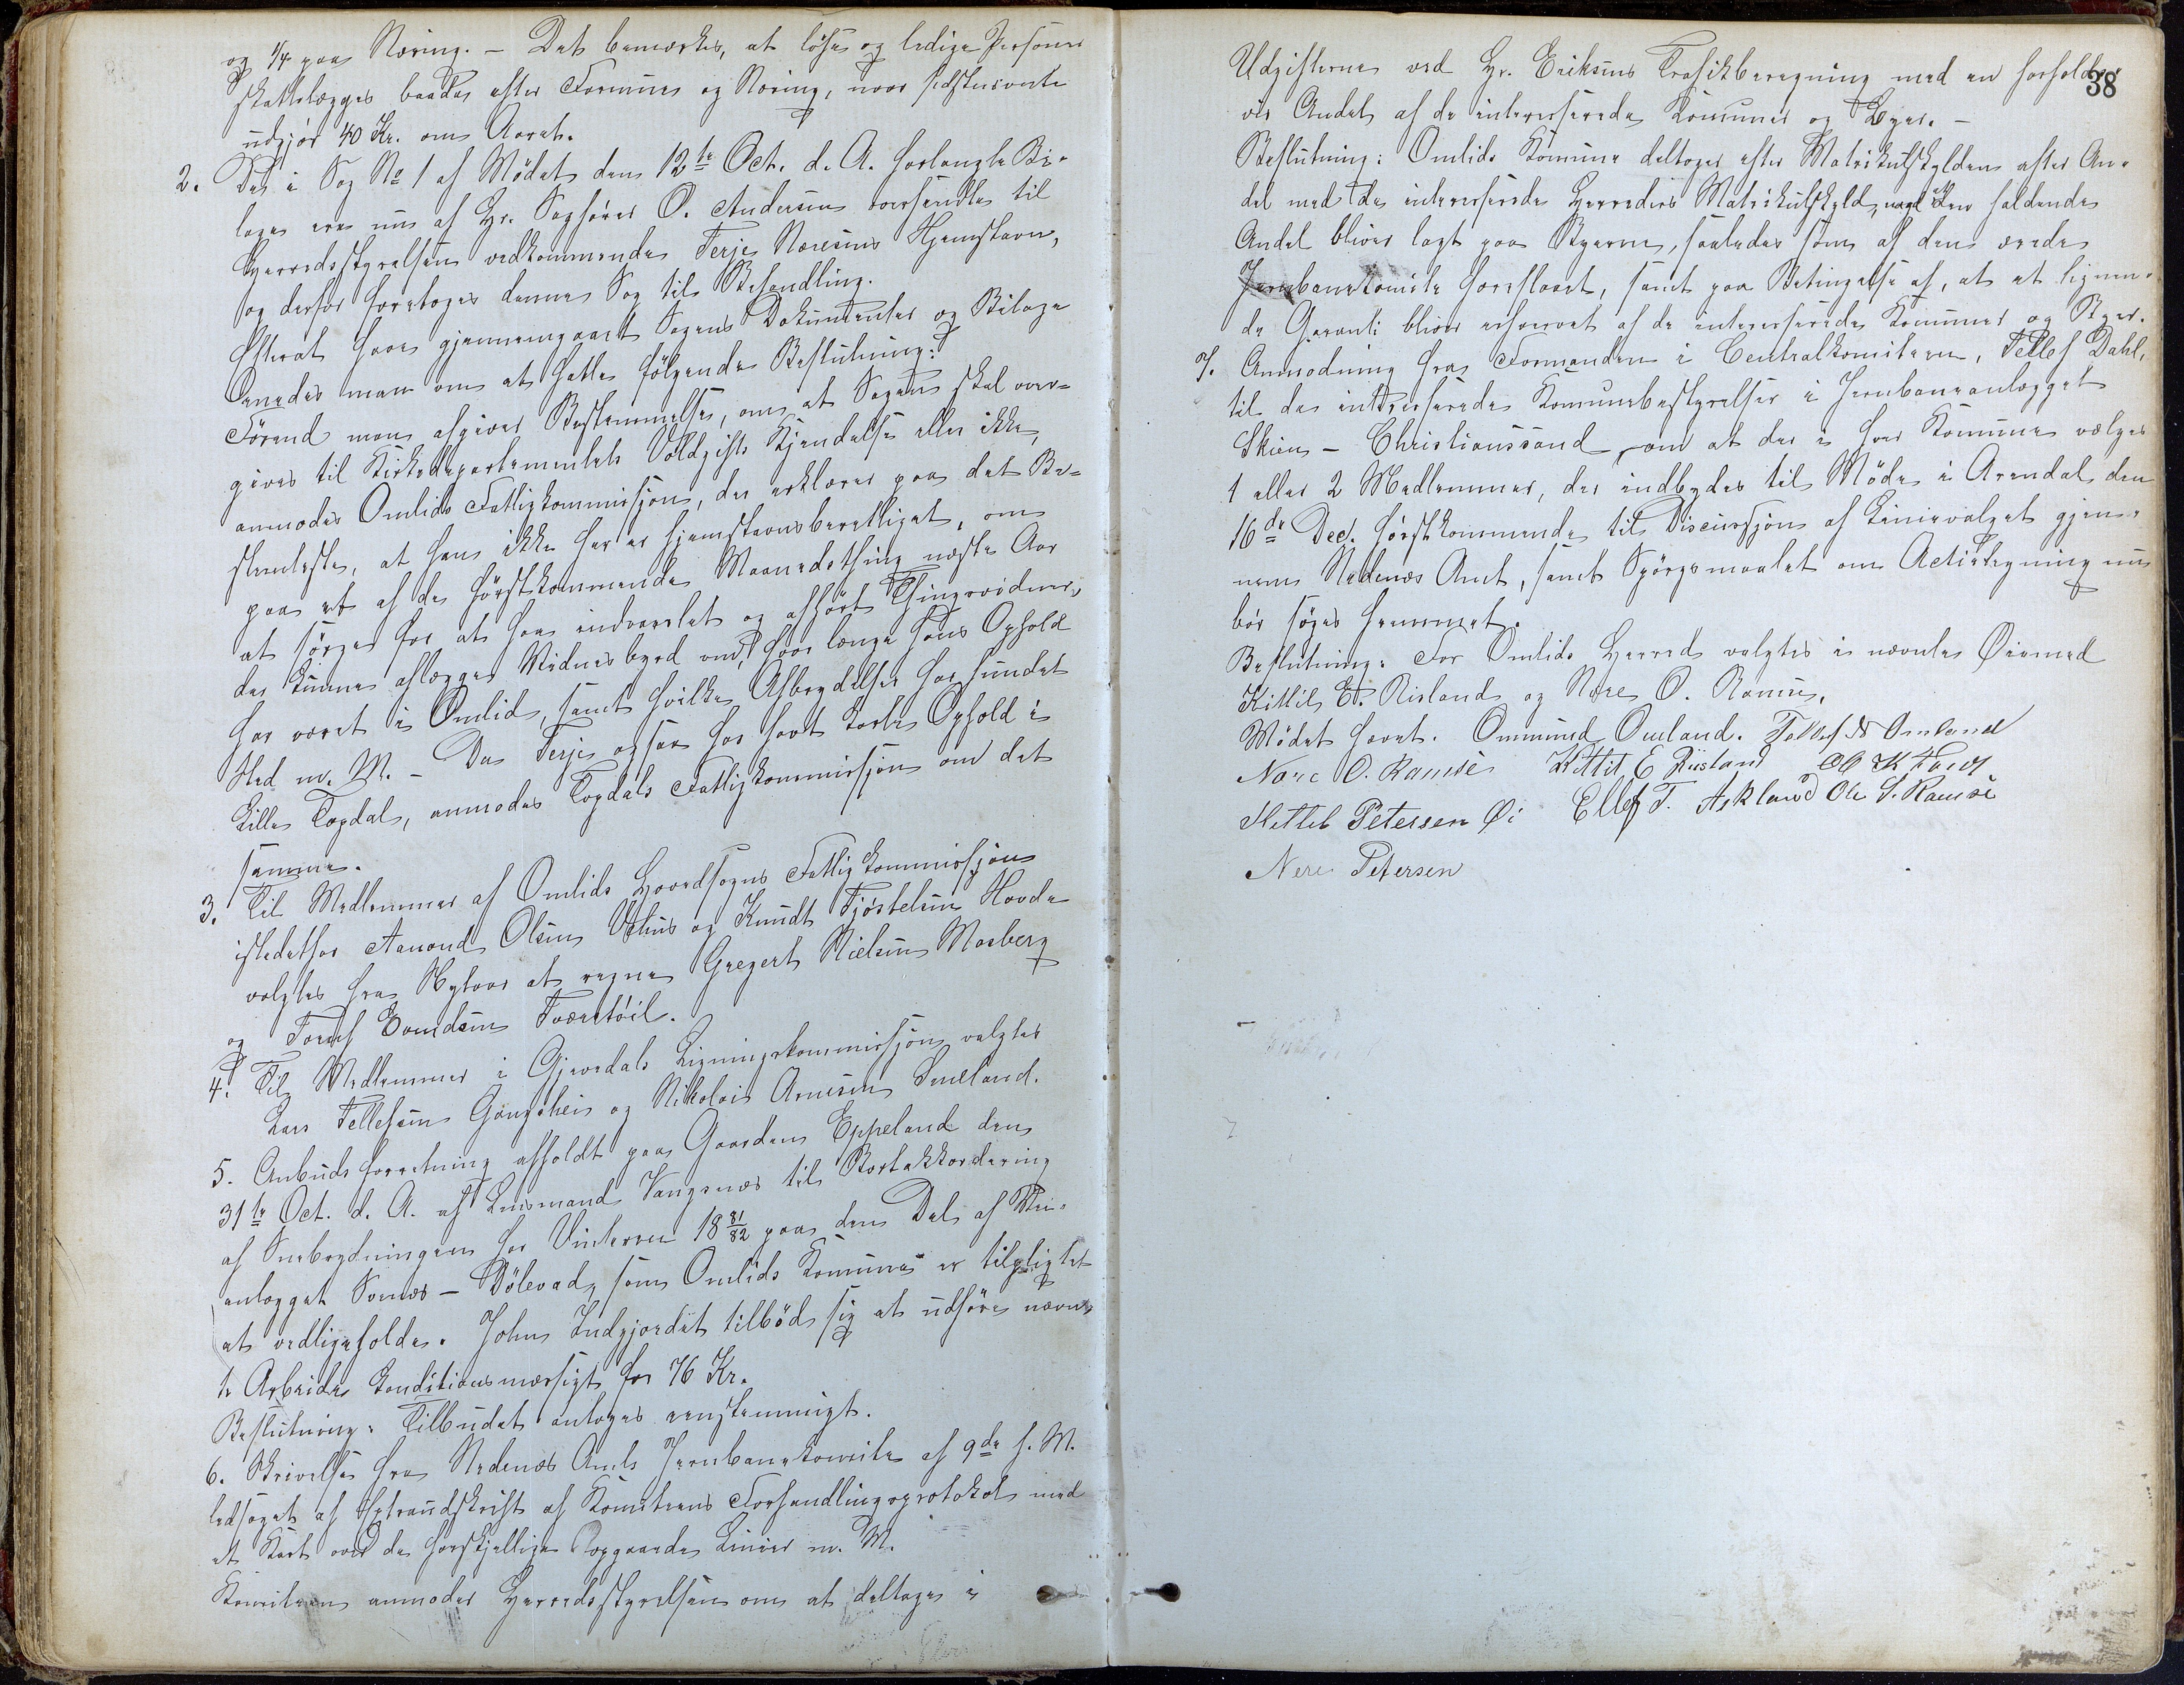 og 1/4 paa Næring. — Det bemærkes, at løse og ledige Personer
skattelægges baade efter Formue og Næring, naar sidstnævnte
udgjør 40 Kr. om Aaret.
2. Det i Sag No 1 af Mødet den 12te Oct. d. A. forlangte Bi-
lage er nu af Hr. Sagfører O. Andersen oversendte til
Herredsstyrelsen vedkommende Terje Næresens Hjemstavn,
og derfor foretoges denne Sag til Behandling.
Efterat have gjennemgaaet Sagens Dokumenter og Bilage
enedes man om at fatte følgende Beslutning:
Førend man afgiver Bestemmelse, om at Sagen skal over-
gives til Kirkedepartementets Voldgifts Kjendelse eller ikke,
anmodes Omlids Fattigkommission, der erklærer paa det Be-
stemteste, at han ikke her er hjemstavnsberettiget, om
paa et af de førstkommende Maanedsthing næste Aar
at sørge for at faa indvarslet og afhørt Thingsvidner,
der kunne aflægge Vidnesbyrd om, hvor længe hans Ophold
har været i Omlid, samt hvilke Afbrydelser har fundet
Sted m. M. — Da Terje ogsaa har havt korte Ophold i
Lille Topdal, anmodes Topdals Fattigkommission om det
samme.
3. Til Medlemmer af Omlids Hovedsogns Fattigkommission
istedetfor Aanond Olsen Vehus og Knudt Fjøstelsen Hovde
valgtes fra Nytaar at regne Gregert Nielsen Mosberg
og Torjus Evendsen Tveretøil.
4. Til Medlemmer i Gjevedals Ligningskommission valgtes
Lars Tellefsen Gangshei og Nikolai Arnesen Smeland.
5. Anbudsforretning afholdt paa Gaarden Eppeland den
31te Oct. d. A. af Lensmand Vangsnes til Bortakkordering
af Snebrydningen for Vinteren 18 81/82 paa den Del af Vei-
anlægget Svenes — Dølevad, som Omlids Komune er tilpligtet
at vedligeholde. John Indgjordet tilbød sig at udføre nævn-
te Arbeide konditionsmæssigt for 76 Kr.
Beslutning: Tilbudet antoges eenstemmigt.
6. Skrivelse fra Nedenæs Amts Jernbanekomite af 9de f. M.
ledsaget af Extraudskrift af Komiteens Forhandlingsprotokol med
et Kart over de forskjellige opgaaede Linier m. M.
Komiteen anmoder Herredsstyrelsen om at deltage i
38
Udgifterne ved Hr. Eriksens Trafikberegning med en forholds-
vis Andel af de interesserede Komuner og Byer. —
Beslutning: Omlids Komune deltager efter Matrikulskylden efter An-
del med de interesserede Herreders Matrikulskyld, med den faldende
Andel bliver lagt paa Byerne, saaledes som af den ærede
Jernbanekomite foreslaaet, samt paa Betingelse af, at et lignen-
de Garanti bliver erhvervet af de interesserede Komuner og Byer.
7. Anmodning fra Formanden i Centralkomiteen, Tellef Dahl,
til de interesserede Komunebestyrelser i Jernbaneanlægget
Skien — Christianssand om at der i hver Komune vælges
1 eller 2 Medlemmer, der indbydes til Møde i Arendal den
16de Dec. førstkommende til Discussion af Linievalget gjen-
nem Nedenæs Amt, samt Spørgsmaalet om Actietegning nu
bør søges fremmet.
Beslutning: For Omlids Herred valgtes i nævnte Øiemed
Kittil E. Risland og Nere O. Ramse.
Mødet hævet. Ommund Omland. Tellef N Omland
Nere O. Ramse Kittil E Riisland
Kittel Petersen Øi Ellef T. Askland Ole S. Ramse
Nere Petersen